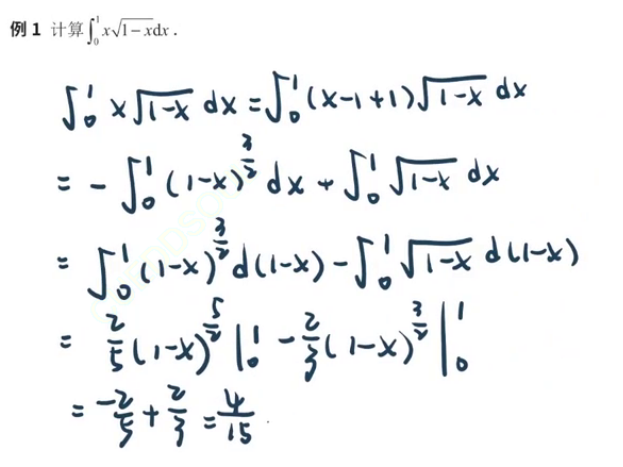 例 1 计算∫₀¹ x√(1−x)dx .
∫₀¹ x√(1-x) dx = ∫₀¹ (x-1+1)√(1-x) dx
= - ∫₀¹ (1-x)^(3/2) dx + ∫₀¹ √(1-x) dx
= ∫₀¹ (1-x)^(3/2) d(1-x) - ∫₀¹ √(1-x) d(1-x)
= 2/5 (1-x)^(5/2) |₀¹ - 2/3 (1-x)^(3/2) |₀¹
= -2/5 + 2/3 = 4/15